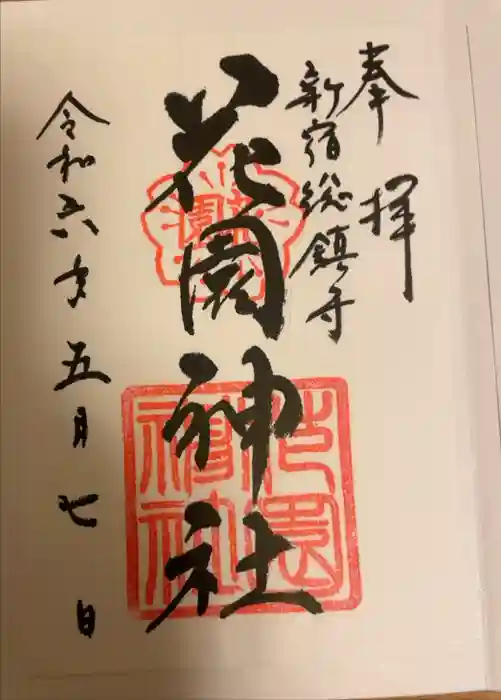 奉拝
新宿総鎮守
花園神社
令和六年五月七日
花園
花園神社